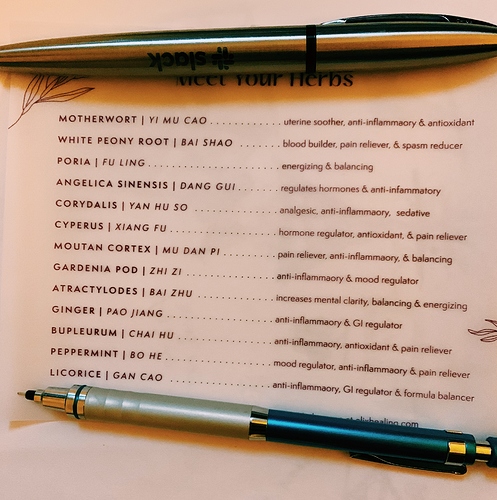 slack
Meet Your Herbs
MOTHERWORT | YI MU CAO ..................... uterine soother, anti-inflammaory & antioxidant
WHITE PEONY ROOT | BAI SHAO .......... blood builder, pain reliever, & spasm reducer
PORIA | FU LING .............................. energizing & balancing
ANGELICA SINENSIS | DANG GUI ........ regulates hormones & anti-infammatory
CORYDALIS | YAN HU SO .................. analgesic, anti-inflammaory, sedative
CYPERUS | XIANG FU ...................... hormone regulator, antioxidant, & pain reliever
MOUTAN CORTEX | MU DAN PI ........... pain reliever, anti-inflammaory, & balancing
GARDENIA POD | ZHI ZI .................. anti-inflammaory & mood regulator
ATRACTYLODES | BAI ZHU ................ increases mental clarity, balancing & energizing
GINGER | PAO JIANG ...................... anti-inflammaory & GI regulator
BUPLEURUM | CHAI HU .................... anti-inflammaory, antioxidant & pain reliever
PEPPERMINT | BO HE ...................... mood regulator, anti-inflammaory & pain reliever
LICORICE | GAN CAO ...................... anti-inflammaory, GI regulator & formula balancer